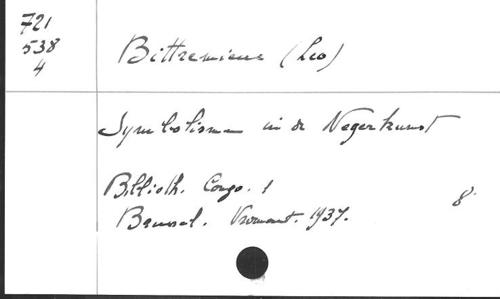 721
538
4
Bittremieux (Leo)
Symbolisme in de Negerkunst
Biblioth. Congo. 1
8°
Brussel. Vromant. 1937.